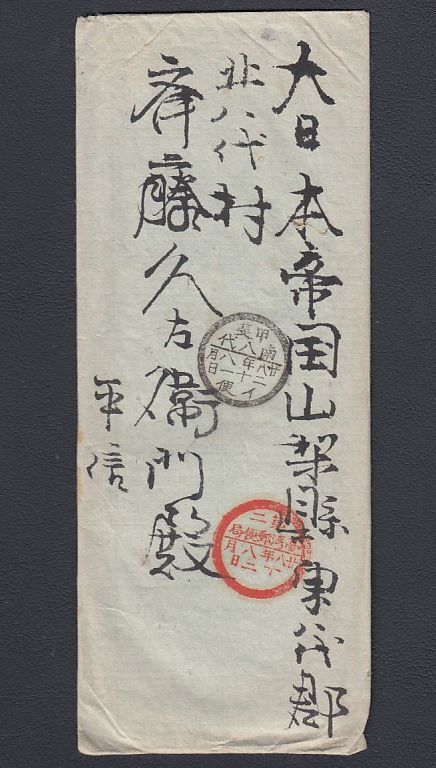 大日本帝国山梨縣東八代郡
北八代村
斉藤久左衛門殿
平信
甲斐
南八代
廿八年八月
二十一日
イ便
二
郵便局
廿八年八月
十二日